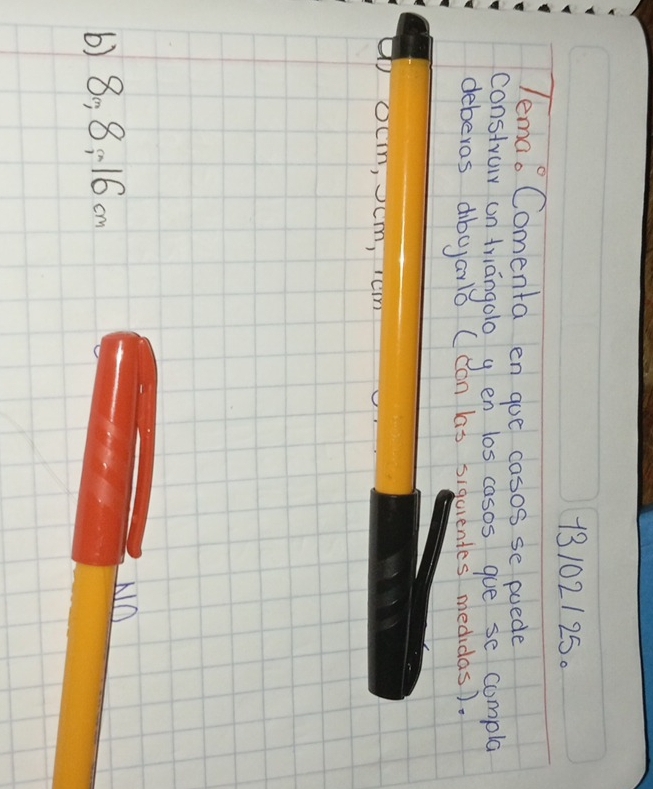 13/02/25.
Tema: Comenta en que casos se puede
construir un triángulo y en los casos que se cumpla
deberas dibujarlo (con las siguientes medidas).
a)
b) 8cm, 8cm, 16cm
NO